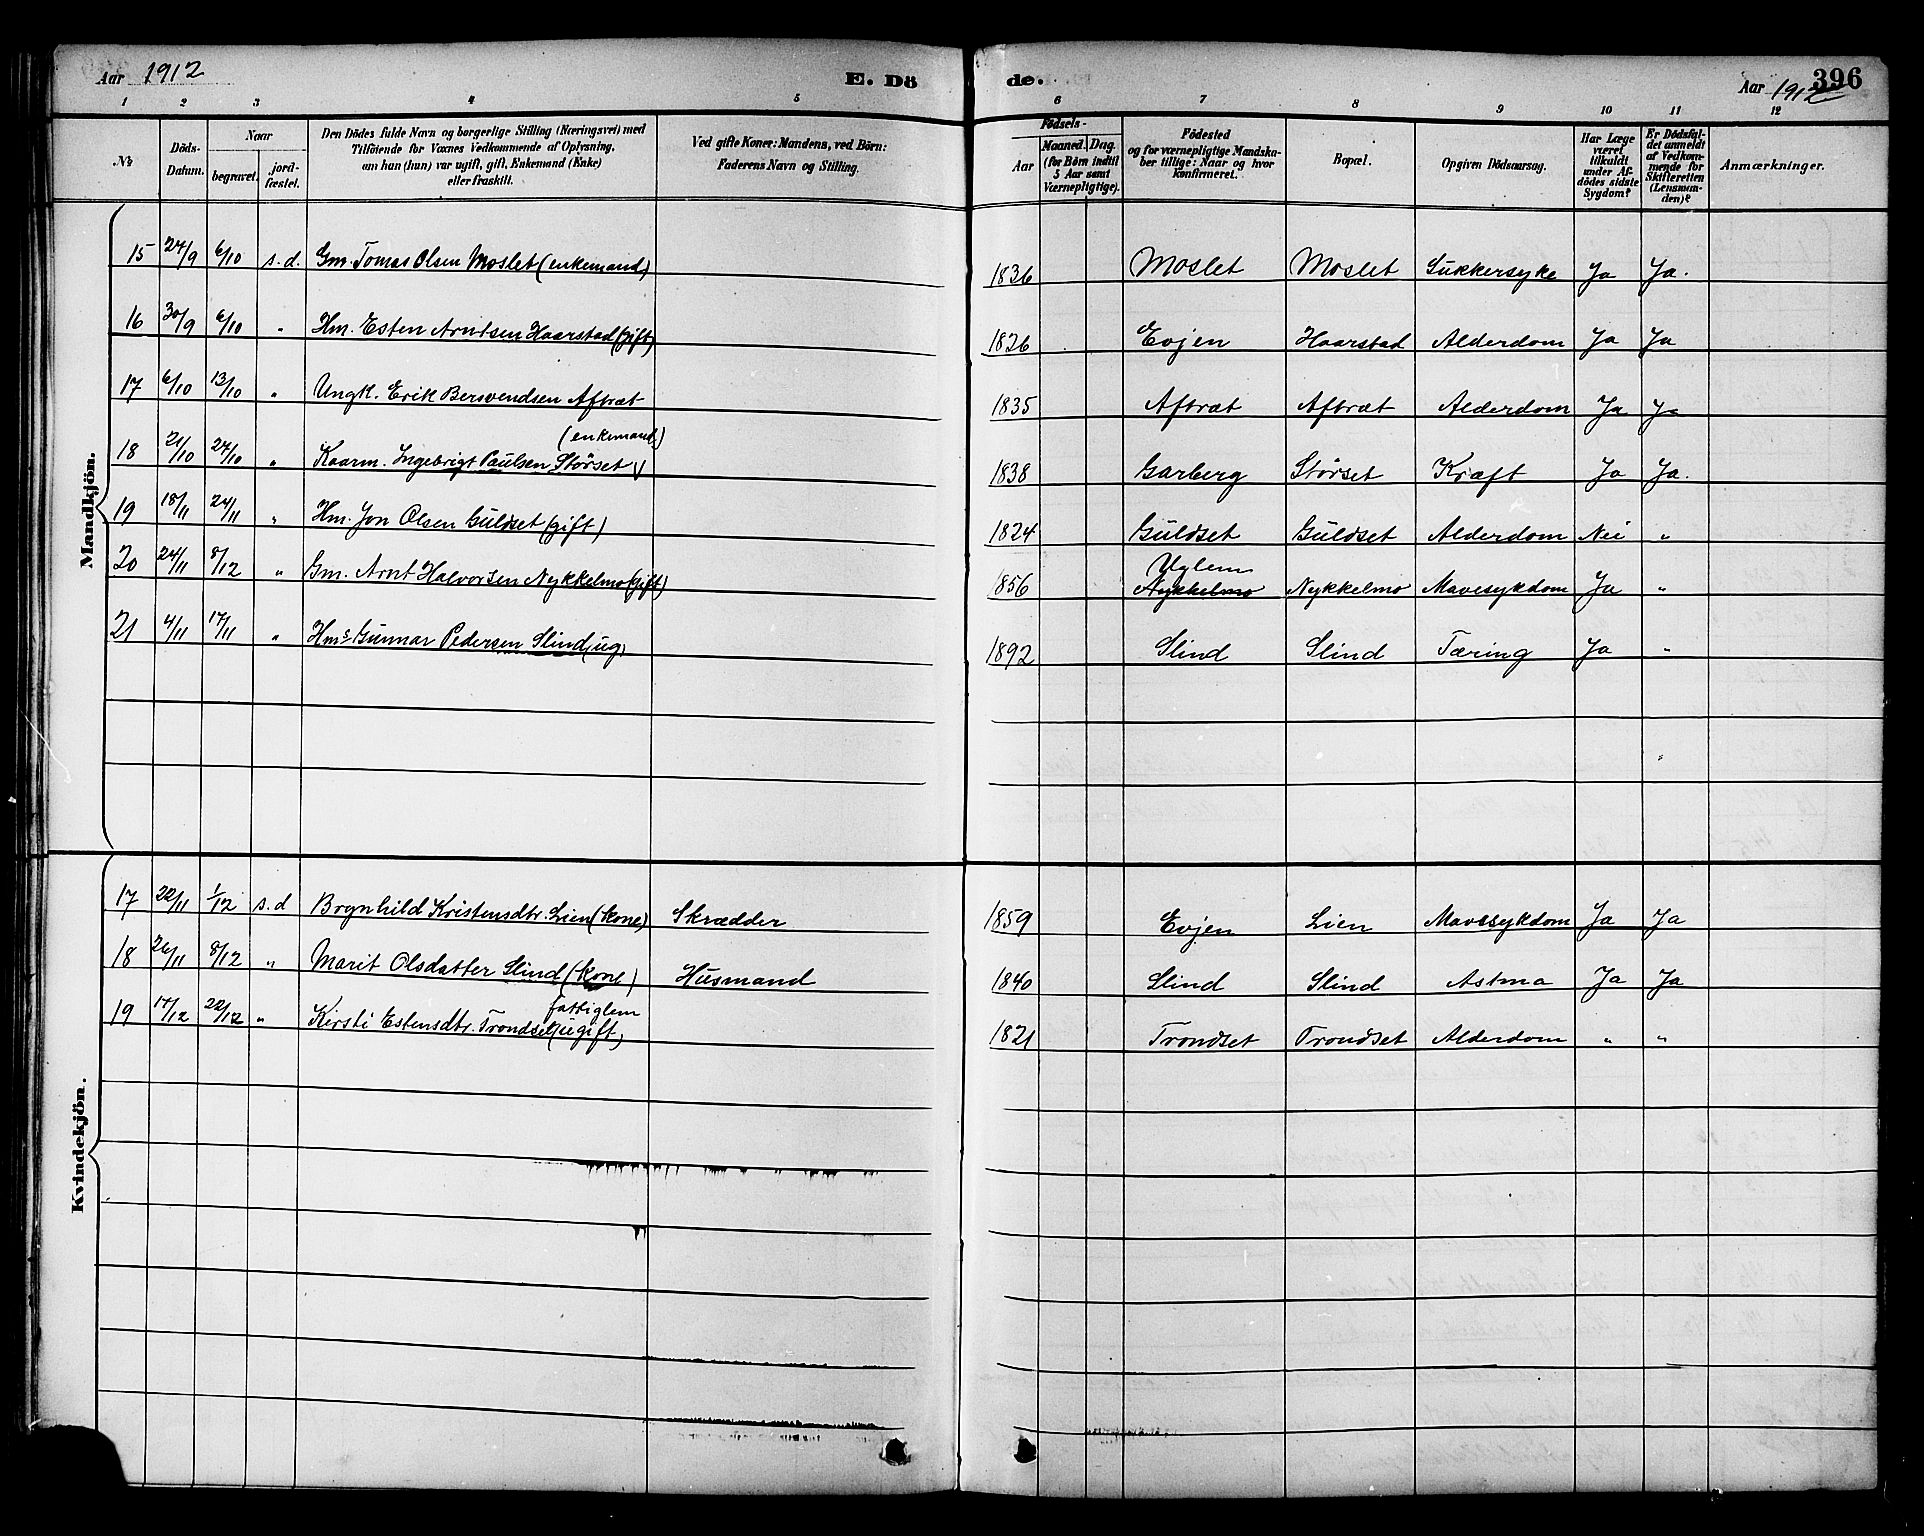 Aar 1912 E. Döde. Aar 1912 396
1 2 3 4 5 6 7 8 9 10 11 12
No Döds-Datum. Naar begravet. jordfæstet. Den Dödes fulde Navn og borgerlige Stilling (Næringsvei) med Tilföiende for Voxnes Vedkommende af Oplysning, om han (hun) var ugift, gift, Enkemand (Enke) eller fraskilt. Ved gifte Koner: Mandens, ved Börn: Faderens Navn og Stilling. Födsels- Aar Maaned. Dag. (for Börn indtil 5 Aar samt Værnepligtige). Födested og for værnepligtige Mandskaber tillige: Naar og hvor konfirmeret. Bopæl. Opgiven Dödsaarsag. Har Læge været tilkaldt under Afdödes sidste Sygdom? Er Dödsfaldet anmeldt af Vedkommende for Skifteretten (Lensmanden)? Anmærkninger.
Mandkjön.
15 24/9 6/10 s.d. Gm. Tomas Olsen Moslet (enkemand) 1836 Moslet Moslet Sukkersyke Ja Ja.
16 30/9 6/10 " Hm. Esten Arntsen Haarstad (gift) 1826 Evjen Haarstad Alderdom Ja Ja
17 6/10 13/10 " Ungk. Erik Bersvendsen Aftræt 1835 Aftræt Aftræt Alderdom Ja Ja
18 21/10 27/10 " Kaarm. Ingebrigt Paulsen Størset (enkemand) 1838 Garberg Størset Kræft Ja Ja.
19 18/11 24/11 " Hm. Jon Olsen Guldset (gift) 1824 Guldset Guldset Alderdom Nei "
20 24/11 8/12 " Gm. Arnt Halvorsen Nykkelmo (gift) 1856 Uglem Nykkelmo Nykkelmo Mavesykdom Ja "
21 4/11 17/11 " Hms Gunnar Pedersen Slind (ug. 1892 Slind Slind Tæring Ja "
Kvindekjön.
17 22/11 1/12 s.d Brynhild Kristensdtr. Lien (kone) Skrædder 1859 Evjen Lien Mavesykdom Ja Ja
18 26/11 8/12 " Marit Olsdatter Slind (kone) Husmand 1840 Slind Slind Astma Ja Ja
19 17/12 22/12 " Kirsti Estensdtr. Trondset (ugift) fattiglem 1821 Trondset Trondset Alderdom " "